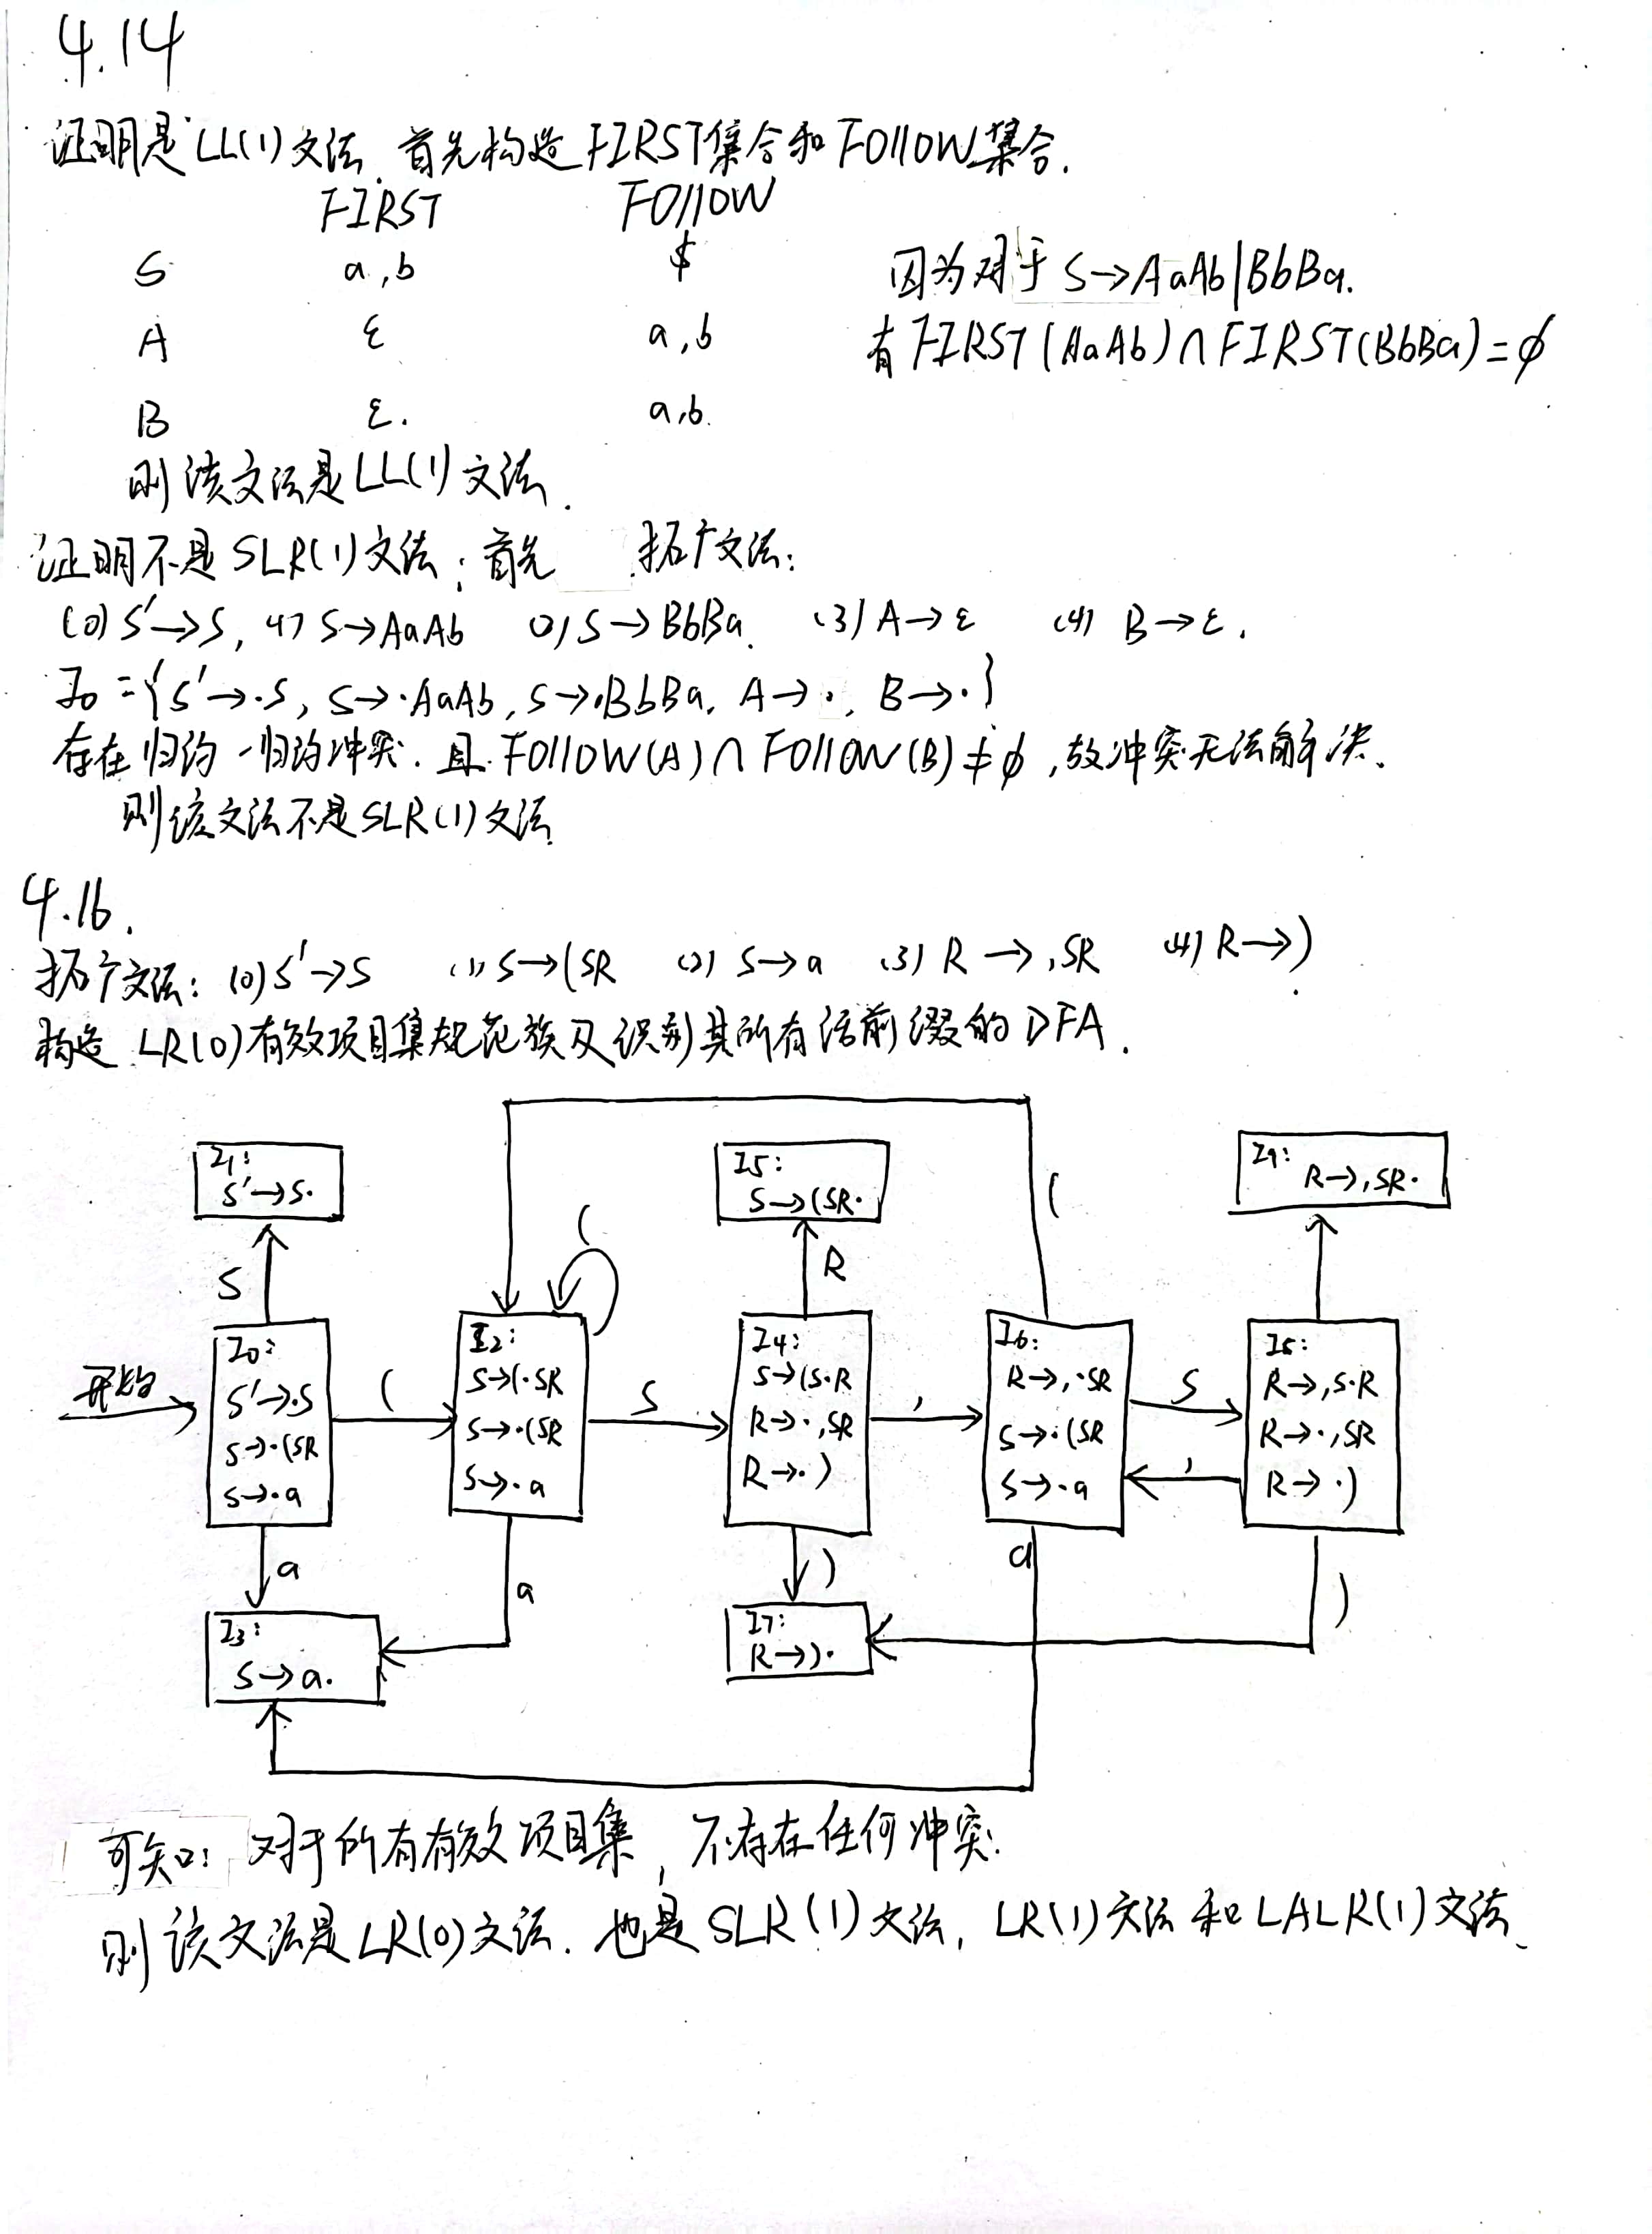 4.14
证明是LL(1)文法. 首先构造FIRST集合和FOllOW集合.
FIRST FOllOW
S a,b $
A ε a,b
B ε. a,b.
因为对于 S→AaAb|BbBa.
有 FIRST(AaAb)∩FIRST(BbBa)=φ
则该文法是LL(1)文法.
证明不是SLR(1)文法: 首先 拓广文法:
(0) S'→S, (1) S→AaAb (2) S→BbBa. (3) A→ε (4) B→ε.
I0={S'→·S, S→·AaAb, S→·BbBa, A→·, B→·}
存在归约-归约冲突. 且 FOllOW(A)∩FOllOW(B)≠φ,故冲突无法解决.
则该文法不是SLR(1)文法.
4.16.
拓广文法: (0) S'→S (1) S→(SR (2) S→a (3) R→,SR (4) R→)
构造 LR(0)有效项目集规范族及识别其所有活前缀的DFA.
I1:
S'→S·
I5:
S→(SR·
I9:
R→,SR·
(
(
S
R
开始
I0:
S'→·S
S→·(SR
S→·a
(
I2:
S→(·SR
S→·(SR
S→·a
S
I4:
S→(S·R
R→·,SR
R→·)
,
I6:
R→,·SR
S→·(SR
S→·a
S
,
I8:
R→,S·R
R→·,SR
R→·)
a
a
)
a
)
I3:
S→a·
I7:
R→)·
可知: 对于所有有效项目集, 不存在任何冲突.
则该文法是LR(0)文法. 也是SLR(1)文法, LR(1)文法和LALR(1)文法.